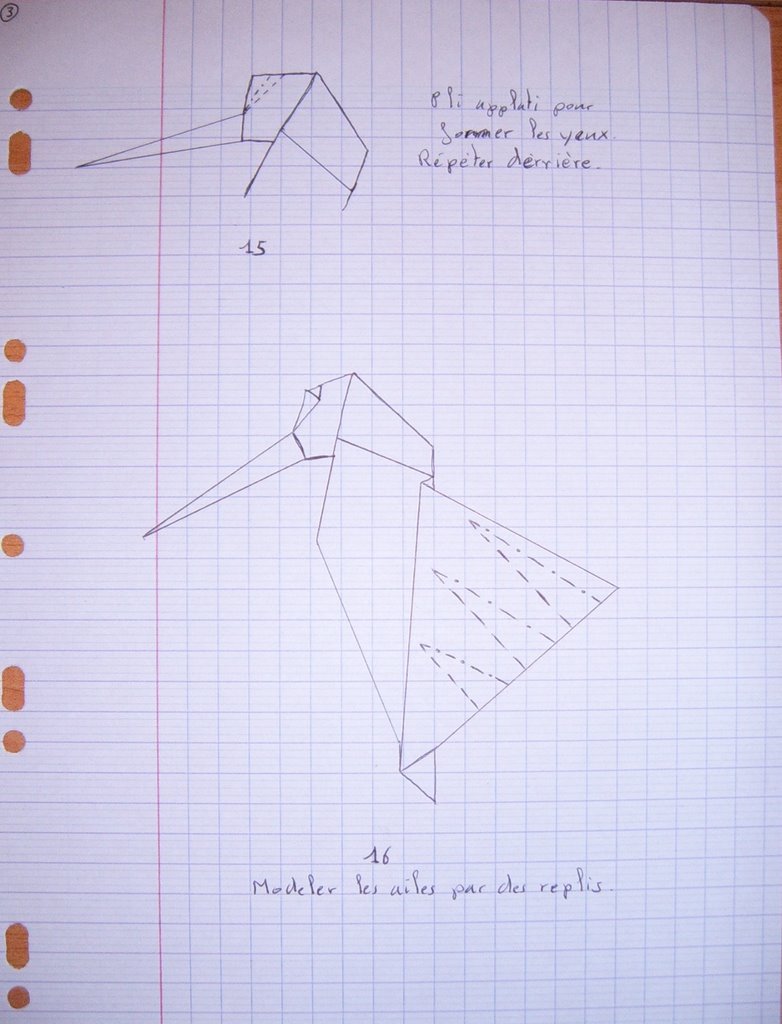 3
Pli applati pour
former les yeux.
Répéter derrière.
15
16
Modeler les ailes par des replis.